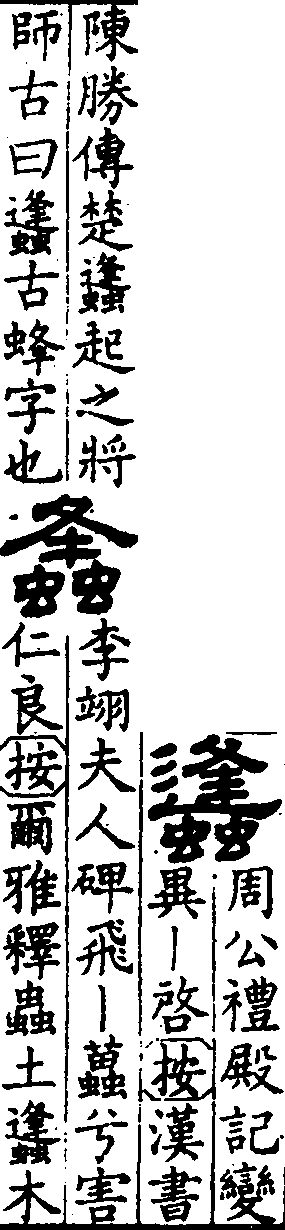 蠭
周公禮殿記變
異丨啓按漢書
陳勝傳楚蠭起之將
師古曰蠭古蜂字也
李翊夫人碑飛丨蠆兮害
仁良按爾雅釋蟲土蠭木